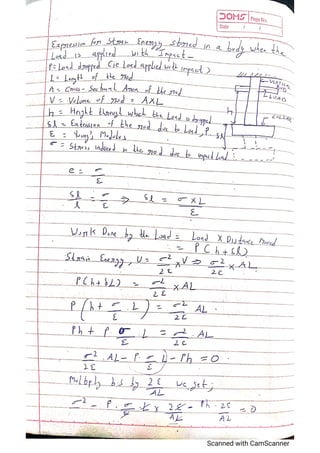 DOMS Page No.
Date / /
Expression for Strain Energy stored in a body when the
Load is applied with Impact -
P = Load dropped (ie Load applied with impact)
L = Length of the rod
A = Cross-Sectional Area of the rod
V = Volume of rod = A×L
h = Height through which the Load is dropped
δL = Extension of the rod due to Load, P.
E = Young's Modulus
σ = Stress induced in the rod due to impact Load
VERTICAL
ROD
LOAD
h
COLLAR
δL
e = σ/E
δL/L = σ/E ⇒ δL = σ×L/E
Work Done by the Load = Load × Distance Moved
= P(h+δL)
Strain Energy, U = σ²/2E × V ⇒ σ²/2E × AL.
P(h+δL) = σ²/2E × AL
P(h + σ/E . L) = σ²/2E AL.
Ph + P σ/E L = σ²/2E . AL
σ²/2E . AL - P σ/E L - Ph = 0.
Multiply b.s by 2E/AL we get;
σ² - P. σ/E L × 2E/AL - Ph. 2E/AL = 0
Scanned with CamScanner